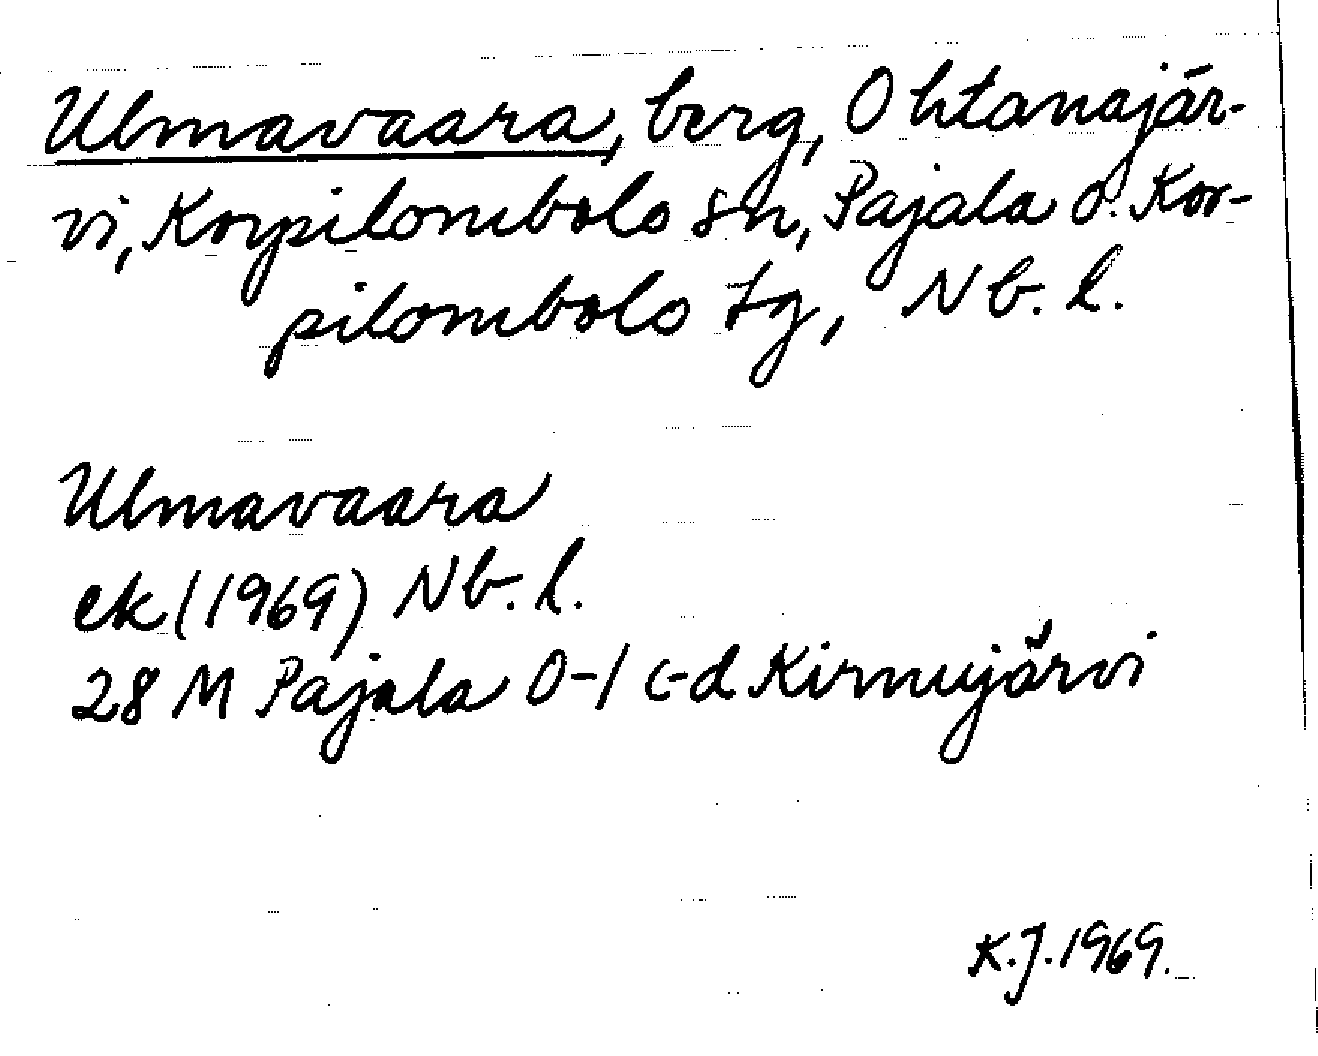 Ulmavaara, berg, Ohtanajär-
vi, Korpilombolo sn, Pajala o. Kor-
pilombolo tg, Nb. l.
Ulmavaara
ek (1969) Nb. l.
28 M Pajala 0-1 c-d Kirnujärvi
K.J. 1969.